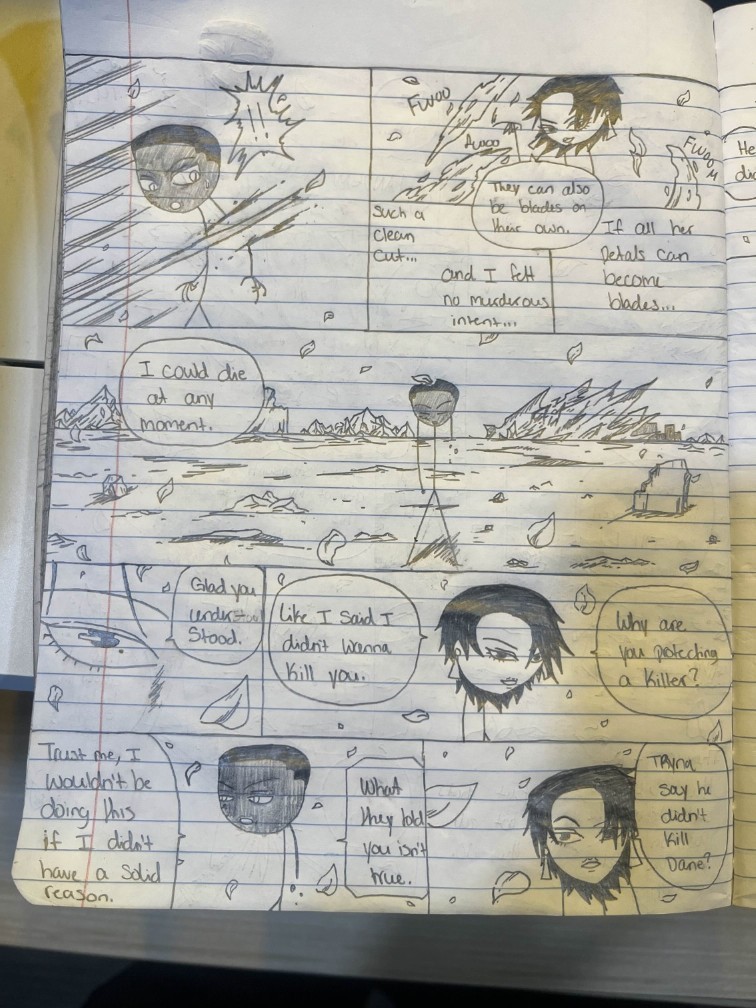 !!
FWOO
Awooo
FWOOM
They can also
be blades on
their own.
Such a
Clean
Cut...
and I felt
no murderous
intent...
If all her
Petals can
become
blades...
I could die
at any
moment.
Glad you
under-
Stood.
Like I said I
didn't wanna
Kill you.
Why are
you protecting
a Killer?
Trust me, I
wouldn't be
doing this
if I didn't
have a Solid
reason.
What
they told
you isn't
true.
TRyna
say he
didn't
Kill
Dane?
He